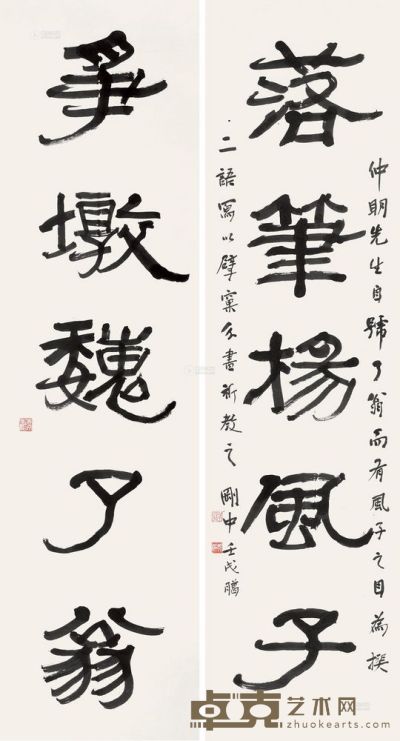 落筆楊風子
仲明先生自號了翁而有風子之目為撰
二語寫以擘窠分書祈教之 剛中 壬戌臘
爭墩魏了翁
卓克艺术网
zhuokearts.com